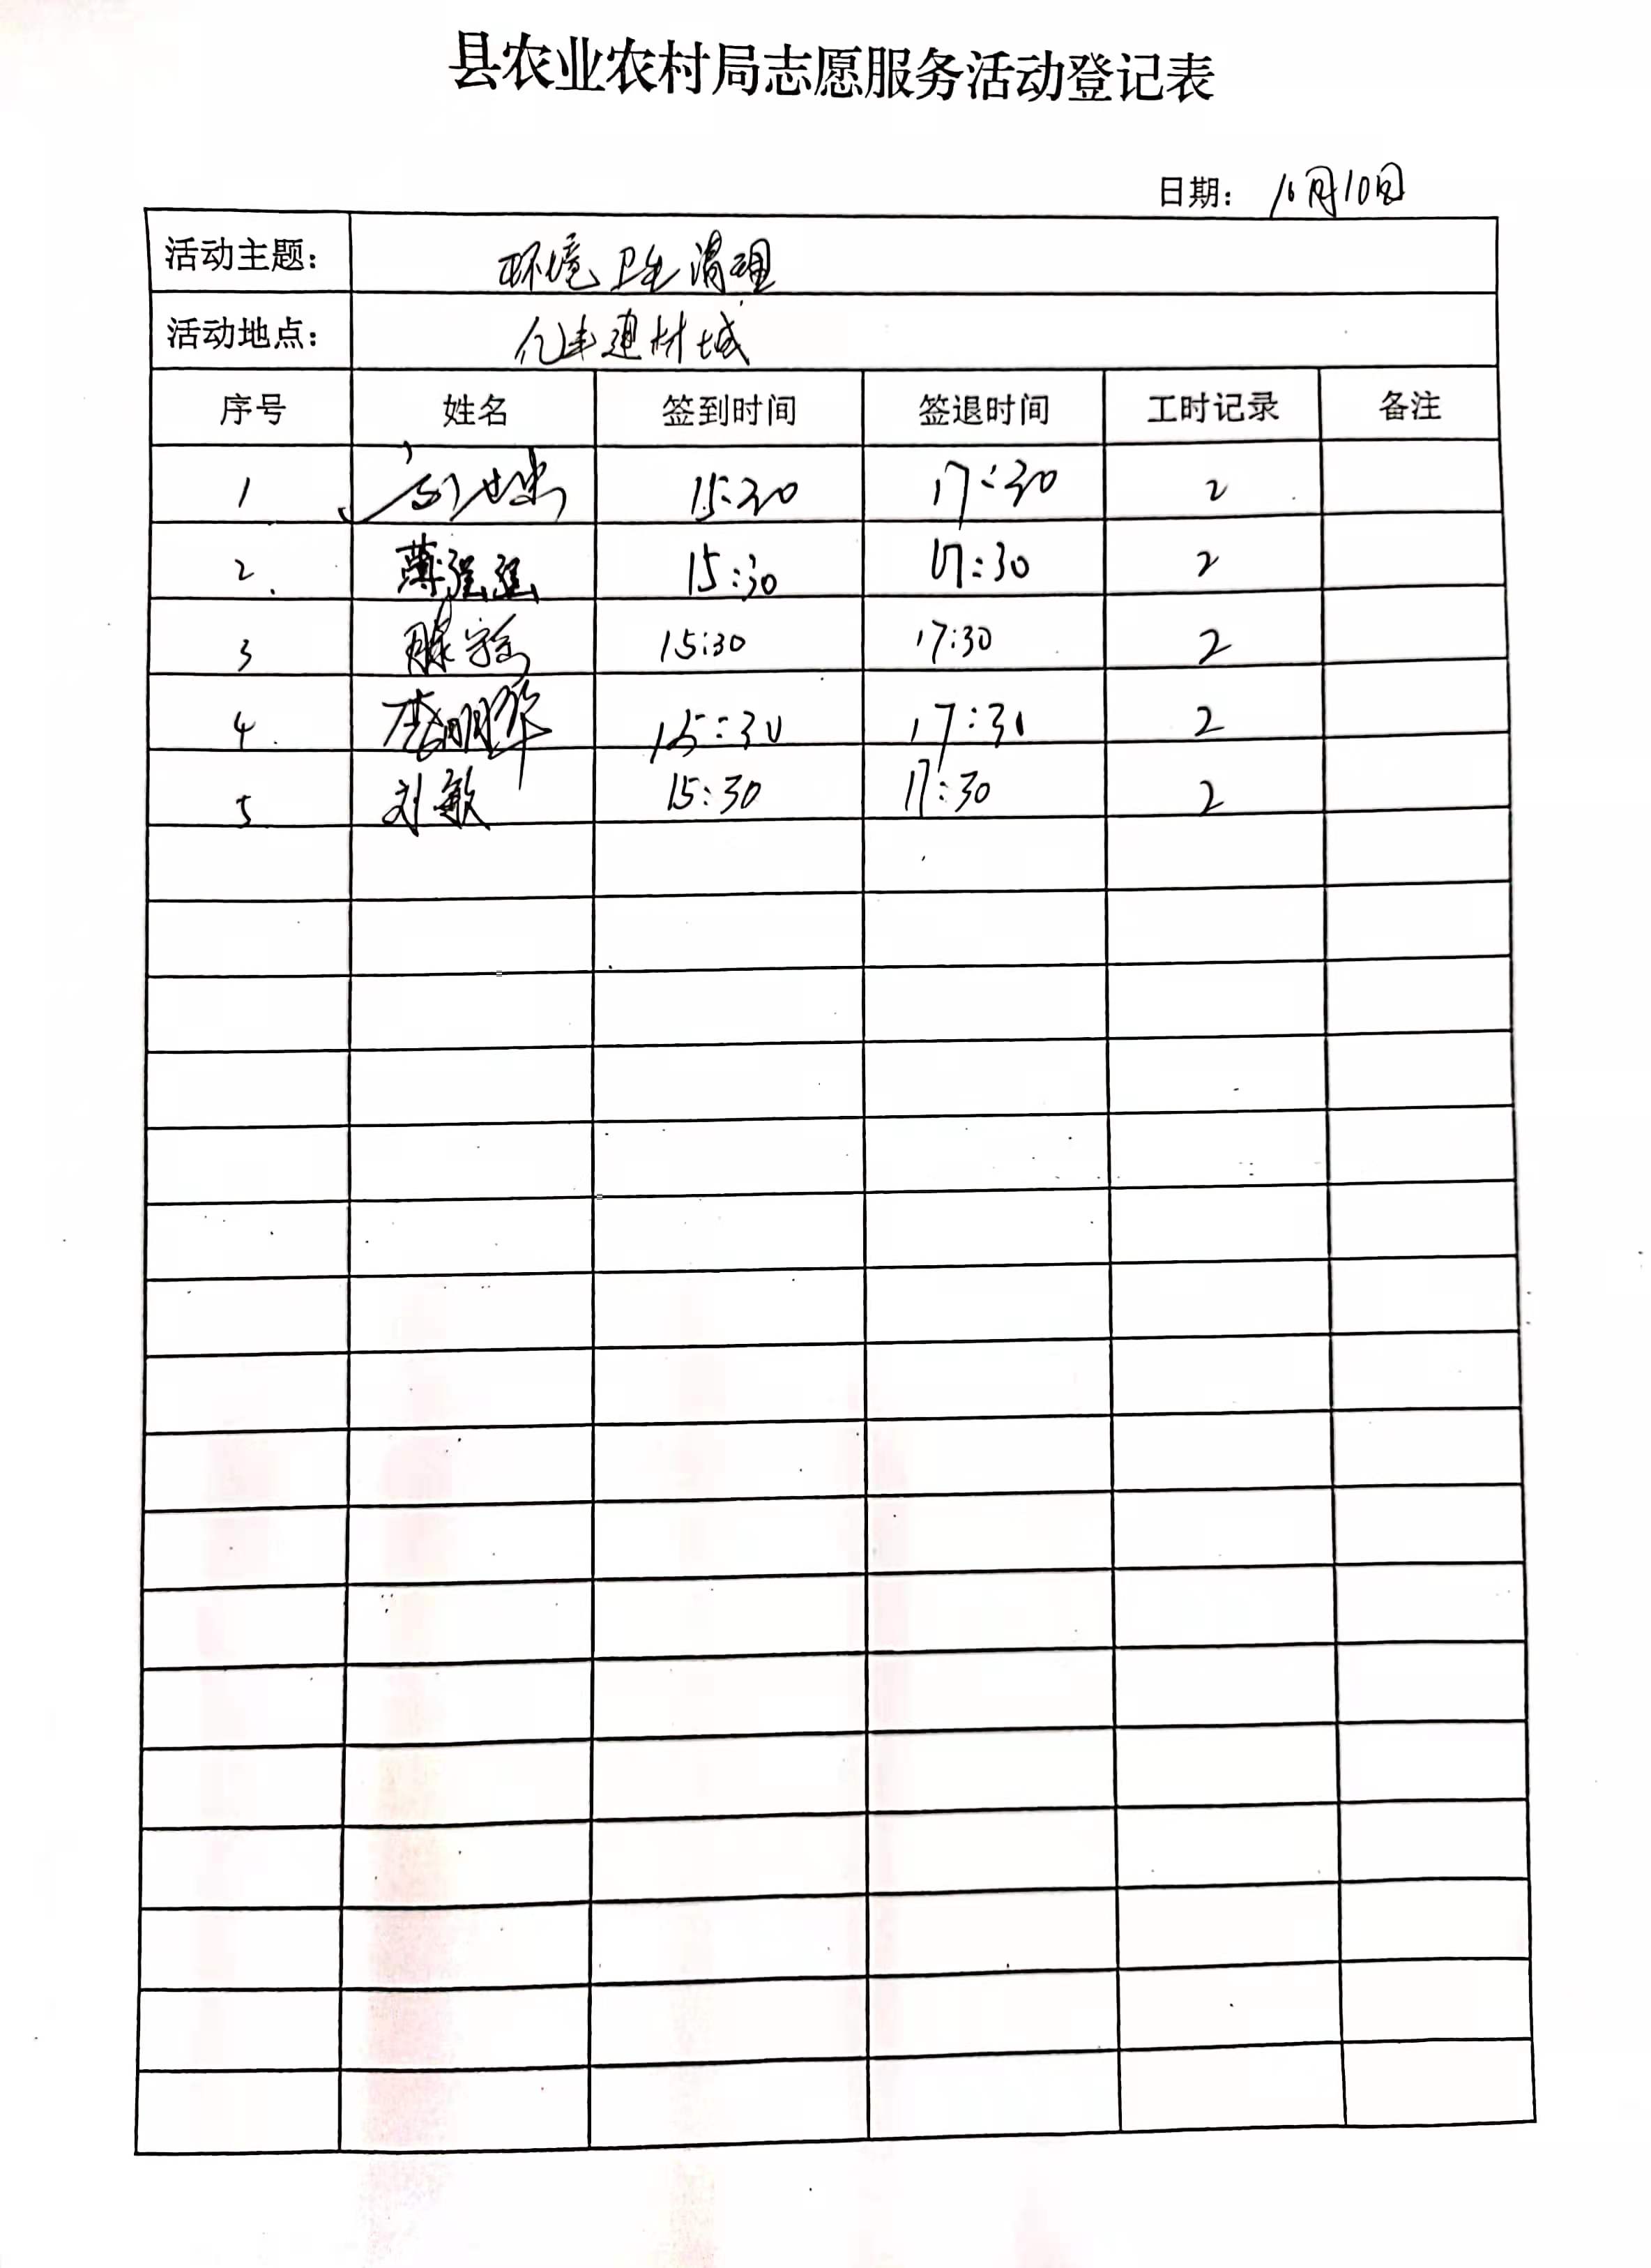 县农业农村局志愿服务活动登记表
日期: 10月10日
活动主题: 环境卫生清理
活动地点: 亿丰建材城
序号 姓名 签到时间 签退时间 工时记录 备注
1 15:30 17:30 2
2 薄强强 15:30 17:30 2
3 滕 15:30 17:30 2
4 李明华 15:30 17:30 2
5 刘敏 15:30 17:30 2